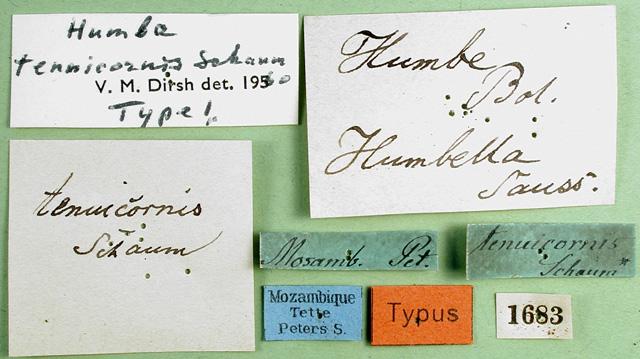 Humbe
tennicornis Schaum
V. M. Dirsh det. 1950
Type!
Humbe
Bol.
Humbella
Sauss.
tenuicornis
Schaum
Mosamb. Pet.
tenuicornis
Schaum*
Mozambique
Tette
Peters S.
Typus
1683